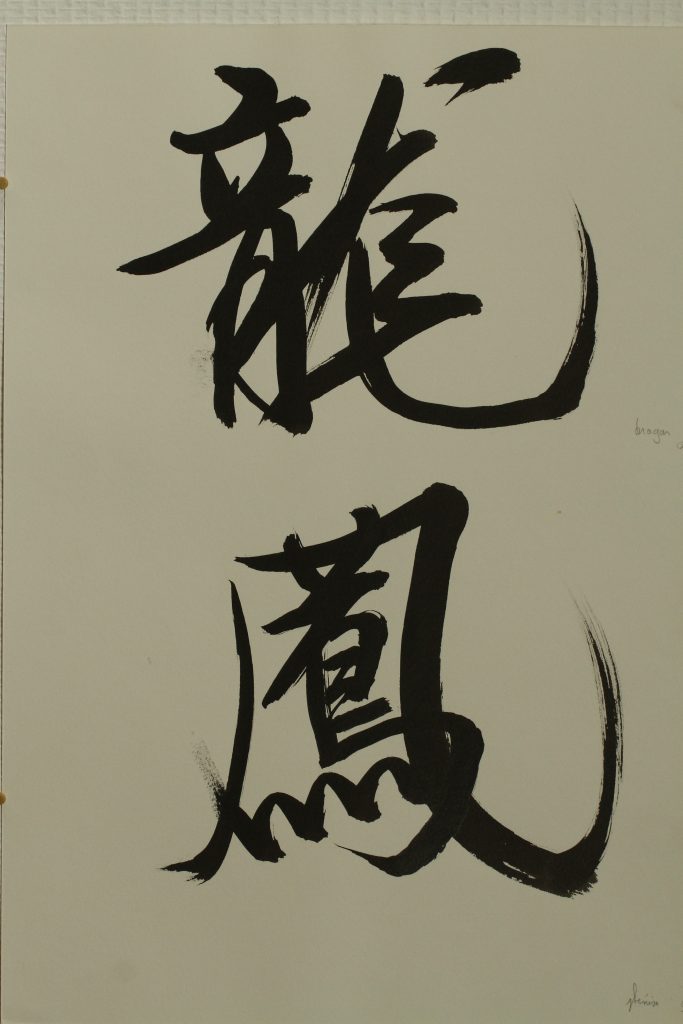 龍
鳳
dragon
phénix